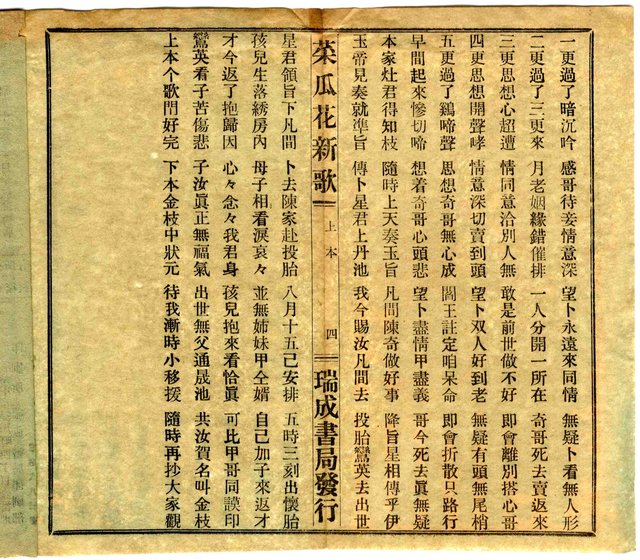 一更過了暗沉吟 感哥待妾情意深 望卜永遠來同情 無疑卜看無人形
二更過了三更來 月老姻緣錯催排 一人分開一所在 奇哥死去賣返來
三更思想心超遭 情同意洽別人無 敢是前世做不好 即會離別搭心哥
四更思想開聲哮 情意深切賣到頭 望卜双人好到老 無疑有頭無尾梢
五更過了鷄啼聲 思想奇哥無心成 閻王註定咱呆命 即會折散只路行
早間起來慘切啼 想着奇哥心頭悲 望卜盡情甲盡義 哥今死去眞無疑
本家灶君得知枝 隨時上天奏玉旨 凡間陳奇做好事 降旨星相傳乎伊
玉帝見奏就準旨 傳卜星君上丹池 我今賜汝凡間去 投胎鸞英去出世
菜瓜花新歌 上本 四 瑞成書局發行
星君領旨下凡間 卜去陳家赴投胎 八月十五己安排 五時三刻出懷胎
孩兒生落綉房內 母子相看淚哀々 並無姉妹甲仝婿 自己加子來返才
才今返了抱歸因 心々念々我君身 孩兒抱來看恰眞 可比甲哥同謨印
鸞英看子苦傷悲 子汝眞正無福氣 出世無父通晟池 共汝賀名叫金枝
上本个歌門好完 下本金枝中狀元 待我漸時小移援 隨時再抄大家觀